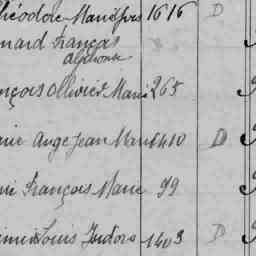 héodore Marie Yves 1616 D
nard François
Alphonse
nçois Ollivier Marie 265
rie Ange Jean Marie 1410 D
François Marie 99
Louis Isidore 1403 D